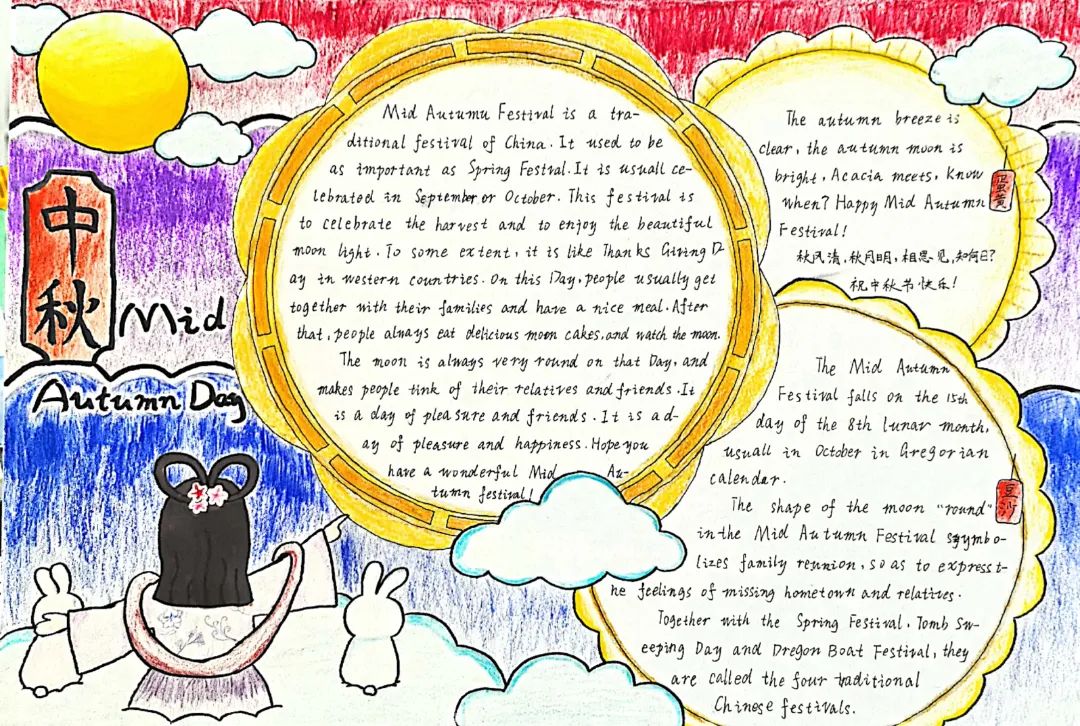 中
秋
Mid
Autumn Day
Mid Autumu Festival is a tra-
ditional festival of China. It used to be
as important as Spring Festval. It is usuall ce-
lebrated in September or October. This festival is
to celebrate the harvest and to enjoy the beautiful
moon light. To some extent, it is like Thanks Giving D-
ay in western countries. On this Day, people usually get
together with their families and have a nice meal. After
that, people always eat delicious moon cakes, and watch the moon.
The moon is always very round on that Day, and
makes people tink of their relatives and friends. It
is a day of pleasure and friends. It is a d-
ay of pleasure and happiness. Hope you
have a wonderful Mid Au-
tumn festival!
The autumn breeze is
clear, the autumn moon is
bright, Acacia meets, Know
when? Happy Mid Autumn
Festival!
秋风清,秋月明,相思见,知何日?
祝中秋节快乐!
蛋黄
The Mid Autumn
Festival falls on the 15th
day of the 8th lunar month,
usuall in October in Gregorian
calendar.
The shape of the moon "round"
in the Mid Autumn Festival symbo-
lizes family reunion, so as to express t-
he feelings of missing hometown and relatives.
Together with the Spring Festival, Tomb Sw-
eeping Day and Dregon Boat Festival, they
are called the four traditional
Chinese festivals.
豆沙